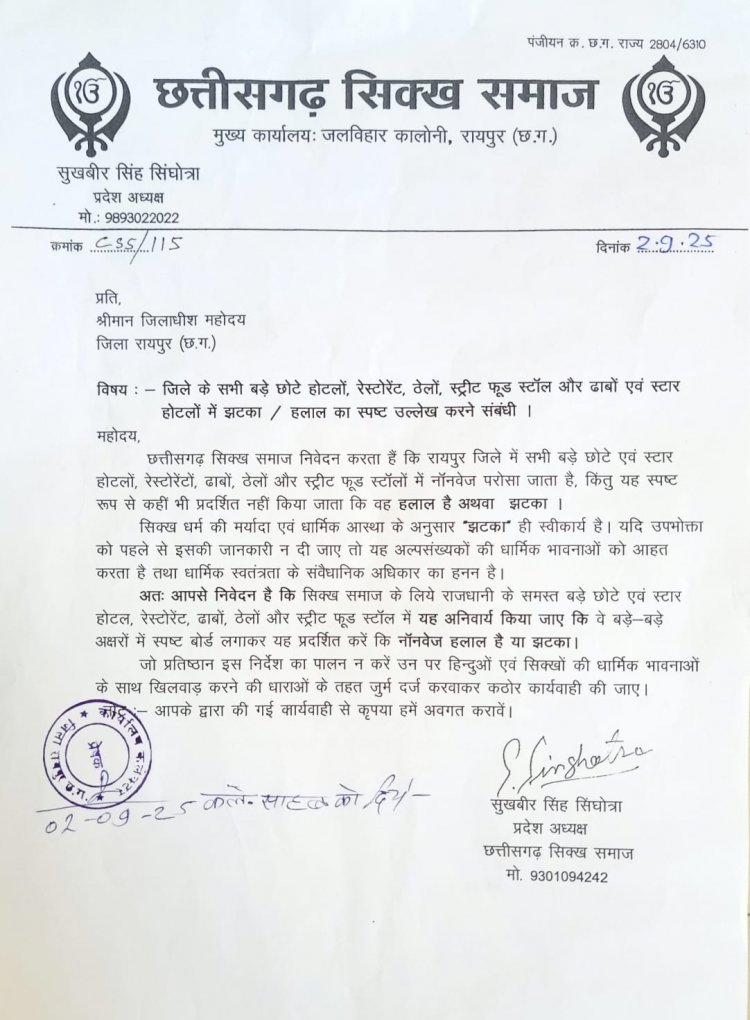 पंजीयन क्र. छ.ग. राज्य 2804/6310
छत्तीसगढ़ सिक्ख समाज
मुख्य कार्यालयः जलविहार कालोनी, रायपुर (छ.ग.)
सुखबीर सिंह सिंघोत्रा
प्रदेश अध्यक्ष
मो.: 9893022022
क्रमांक CSS/115
दिनांक 2.9.25
प्रति,
श्रीमान जिलाधीश महोदय
जिला रायपुर (छ.ग.)
विषय : – जिले के सभी बड़े छोटे होटलों, रेस्टोरेंट, ठेलों, स्ट्रीट फूड स्टॉल और ढाबों एवं स्टार
होटलों में झटका / हलाल का स्पष्ट उल्लेख करने संबंधी ।
महोदय,
छत्तीसगढ़ सिक्ख समाज निवेदन करता हैं कि रायपुर जिले में सभी बड़े छोटे एवं स्टार
होटलों, रेस्टोरेंटों, ढाबों, ठेलों और स्ट्रीट फूड स्टॉलों में नॉनवेज परोसा जाता है, किंतु यह स्पष्ट
रूप से कहीं भी प्रदर्शित नहीं किया जाता कि वह हलाल है अथवा झटका ।
सिक्ख धर्म की मर्यादा एवं धार्मिक आस्था के अनुसार "झटका" ही स्वीकार्य है। यदि उपभोक्ता
को पहले से इसकी जानकारी न दी जाए तो यह अल्पसंख्यकों की धार्मिक भावनाओं को आहत
करता है तथा धार्मिक स्वतंत्रता के संवैधानिक अधिकार का हनन है।
अतः आपसे निवेदन है कि सिक्ख समाज के लिये राजधानी के समस्त बड़े छोटे एवं स्टार
होटल, रेस्टोरेंट, ढाबों, ठेलों और स्ट्रीट फूड स्टॉल में यह अनिवार्य किया जाए कि वे बड़े–बड़े
अक्षरों में स्पष्ट बोर्ड लगाकर यह प्रदर्शित करें कि नॉनवेज हलाल है या झटका।
जो प्रतिष्ठान इस निर्देश का पालन न करें उन पर हिन्दुओं एवं सिक्खों की धार्मिक भावनाओं
के साथ खिलवाड़ करने की धाराओं के तहत जुर्म दर्ज करवाकर कठोर कार्यवाही की जाए।
:– आपके द्वारा की गई कार्यवाही से कृपया हमें अवगत करावें।
कार्यालय कलेक्टर
02-09-25 कले. साहब को दिया –
S. Singhotra
सुखबीर सिंह सिंघोत्रा
प्रदेश अध्यक्ष
छत्तीसगढ़ सिक्ख समाज
मो. 9301094242